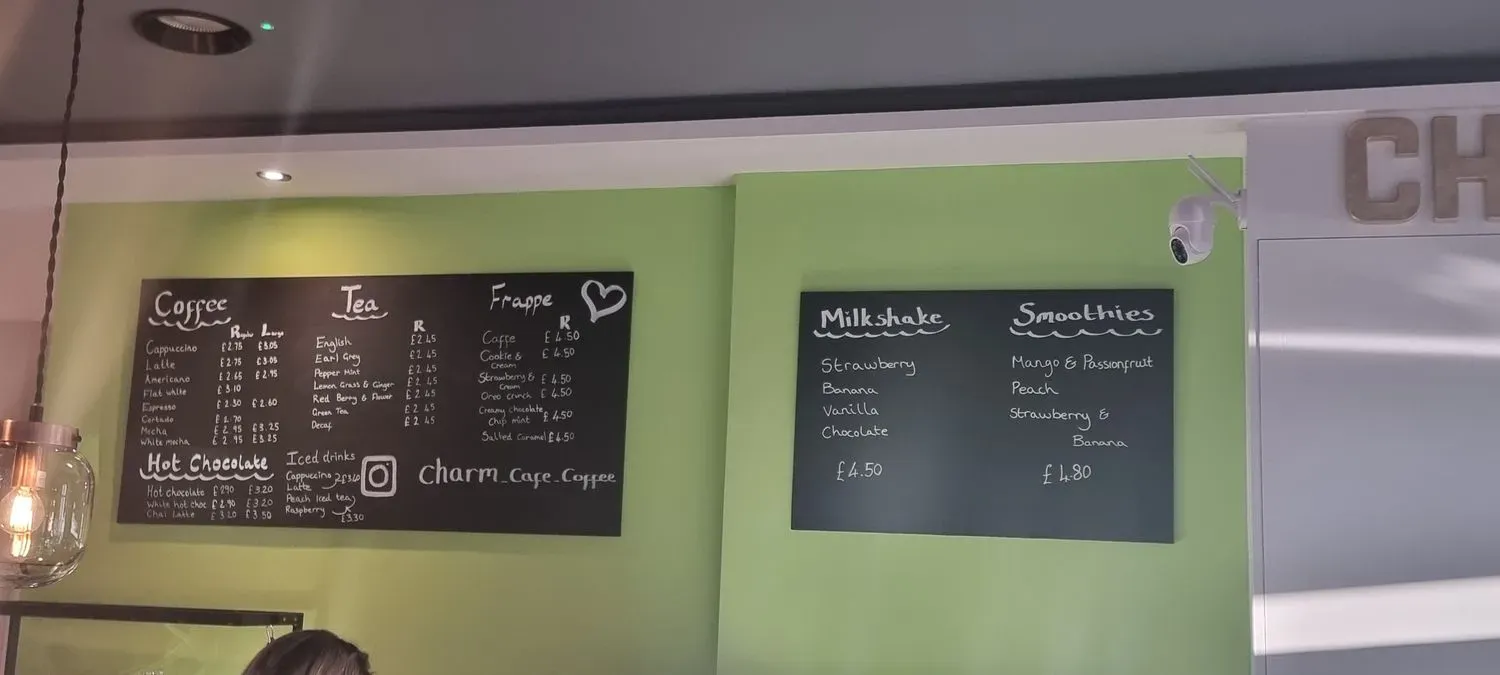 Coffee
Regular Large
Cappuccino £2.75 £3.05
Latte £2.75 £3.05
Americano £2.65 £2.95
Flat white £3.10
Espresso £2.30 £2.60
Cortado £2.70
Mocha £2.95 £3.25
White mocha £2.95 £3.25
Hot Chocolate
Hot chocolate £2.90 £3.20
White hot choc £2.90 £3.20
Chai Latte £3.20 £3.50
Tea
R
English £2.45
Earl Grey £2.45
Pepper Mint £2.45
Lemon Grass & Ginger £2.45
Red Berry & Flower £2.45
Green Tea £2.45
Decaf £2.45
Iced drinks
Cappuccino
Latte
Peach Iced tea
Raspberry £3.30
Frappe
R
Caffe £4.50
Cookie & £4.50
Cream
Strawberry & £4.50
Cream
Oreo crunch £4.50
Creamy chocolate £4.50
Chip mint
Salted Caramel £4.50
Charm_Cafe_Coffee
Milkshake
Strawberry
Banana
Vanilla
Chocolate
£4.50
Smoothies
Mango & Passionfruit
Peach
Strawberry &
Banana
£4.80
CH